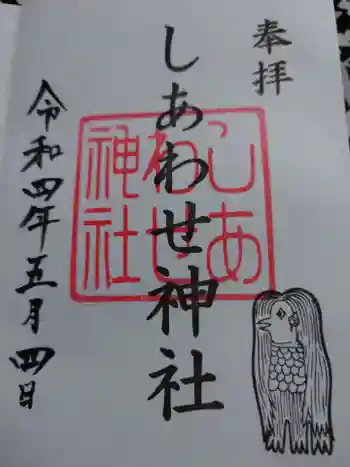 奉拝
しあわせ神社
しあわせ神社
令和四年五月四日